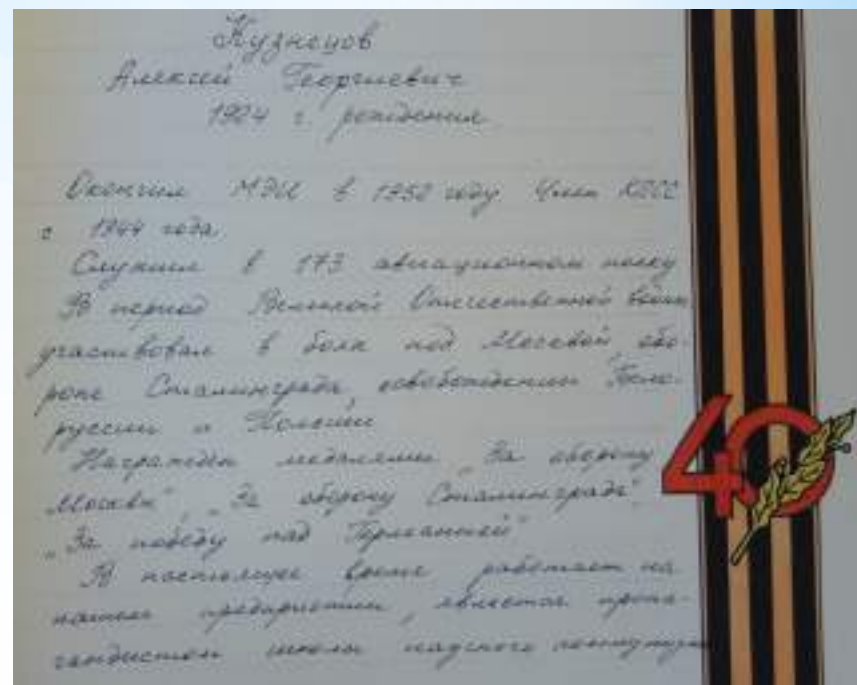 Кузнецов
Алексей Георгиевич
1924 г. рождения
Окончил МЭИ в 1952 году Член КПСС
с 1944 года.
Служил в 173 авиационном полку
В период Великой Отечественной войны
участвовал в боях под Москвой, обо-
роне Сталинграда, освобождении Бело-
руссии и Польши
Награжден медалями „За оборону
Москвы", „За оборону Сталинграда",
„За победу над Германией"
В настоящее время работает на
нашем предприятии, является пропа-
гандистом школы научного коммунизма
40